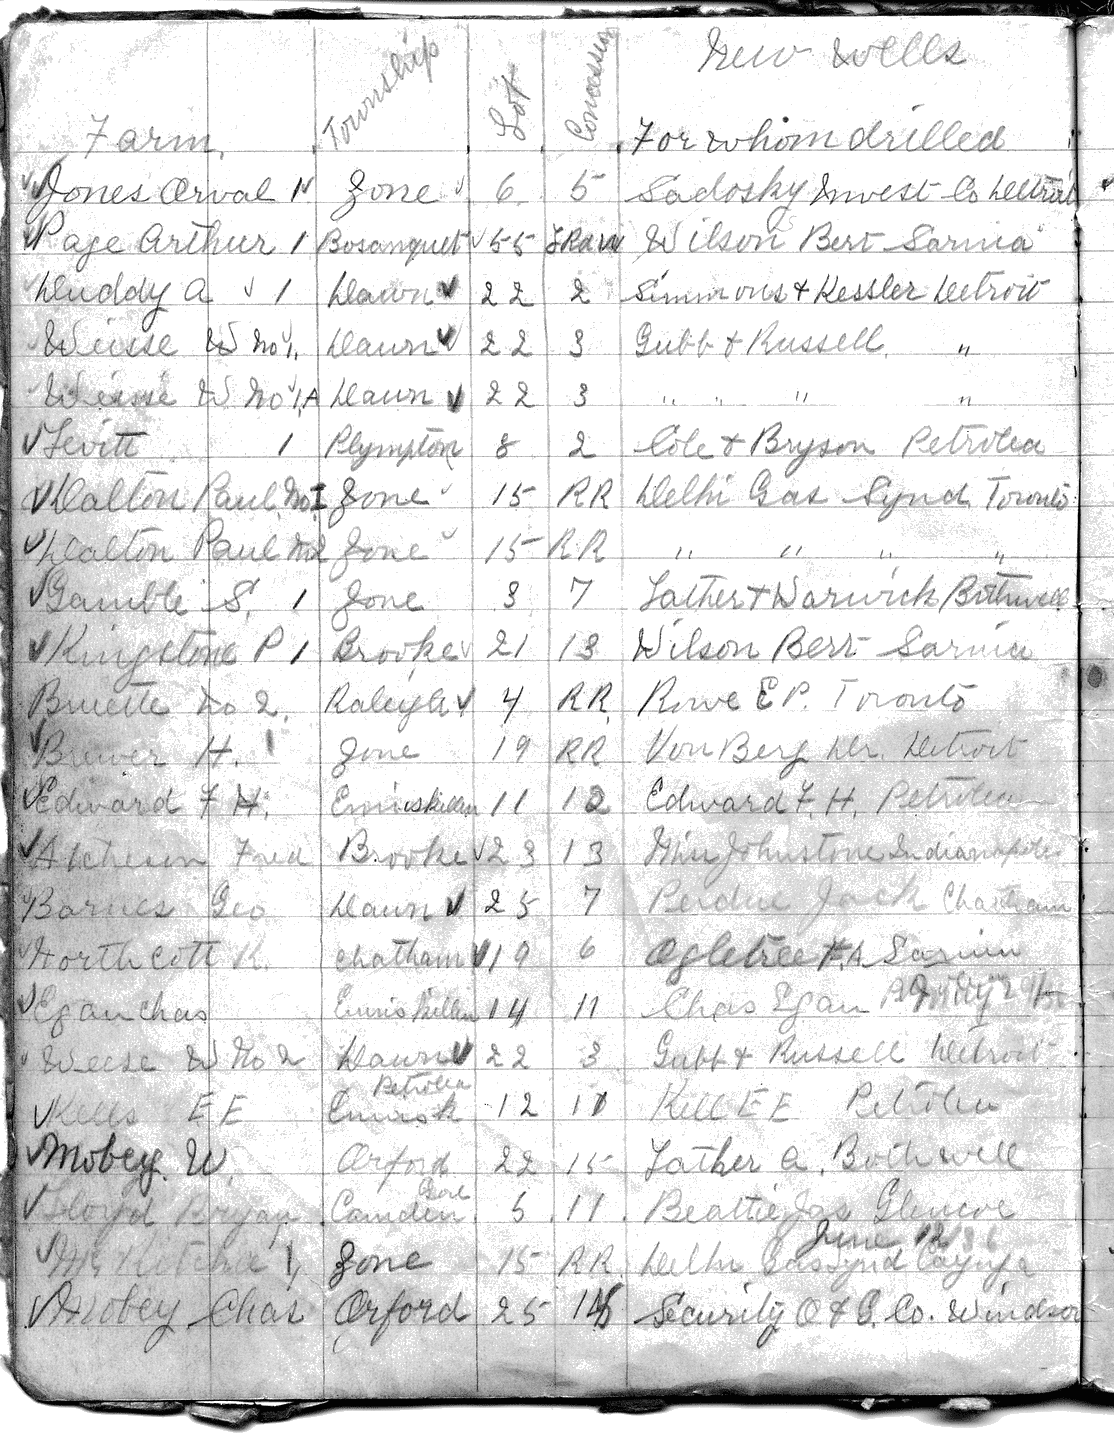 New Wells
Farm. Township Lot Concession For whom drilled
Jones Orval 1 Zone 6 5 Sadosky Invest Co Detroit
Page Arthur 1 Bosanquet 55 Wilson Bert Sarnia
Duddy A 1 Dawn 22 2 Simmons & Kessler Detroit
Weise W No 1. Dawn 22 3 Gubb & Russell "
Weise W No 1,A Dawn 22 3 " " " "
Levitt 1 Plympton 8 2 Cole & Bryson Petrolea
Dalton Paul No I Zone 15 RR Delhi Gas Synd Toronto
Dalton Paul No 2 Zone 15 RR " " " "
Gamble S. 1 Zone 3 7 Lather & Warwick Bothwell
Kingstone P 1 Brooke 21 13 Wilson Bert Sarnia
Bruette No 2. Raleigh 4 RR Rowe E P. Toronto
Brewer H. 1 Zone 19 RR Von Berg Dr. Detroit
Edward F. H. Enniskillen 11 12 Edward F. H. Petrolea
Atcheson Fred Brooke 23 13 Johnstone Indianapolis
Barnes Geo Dawn 25 7 Perdue Jack Chatham
Northcott K. Chatham 19 6 Ogletree F.A Sarnia
Egan Chas Enniskillen 14 11 Chas Egan
Weese W No 2 Dawn 22 3 Gubb & Russell Detroit
Petrolea
Kells E E Ennisk 12 11 Kell E E Petrolea
Mobey W. Orford 22 15 Lather A. Bothwell
Gore
Lloyd Camden 5 11 Beattie Jas Glencoe
June
Zone 15 RR. Delhi Gas Synd Cayuga
Mobey Chas Orford 25 Security O & G. Co. Windsor